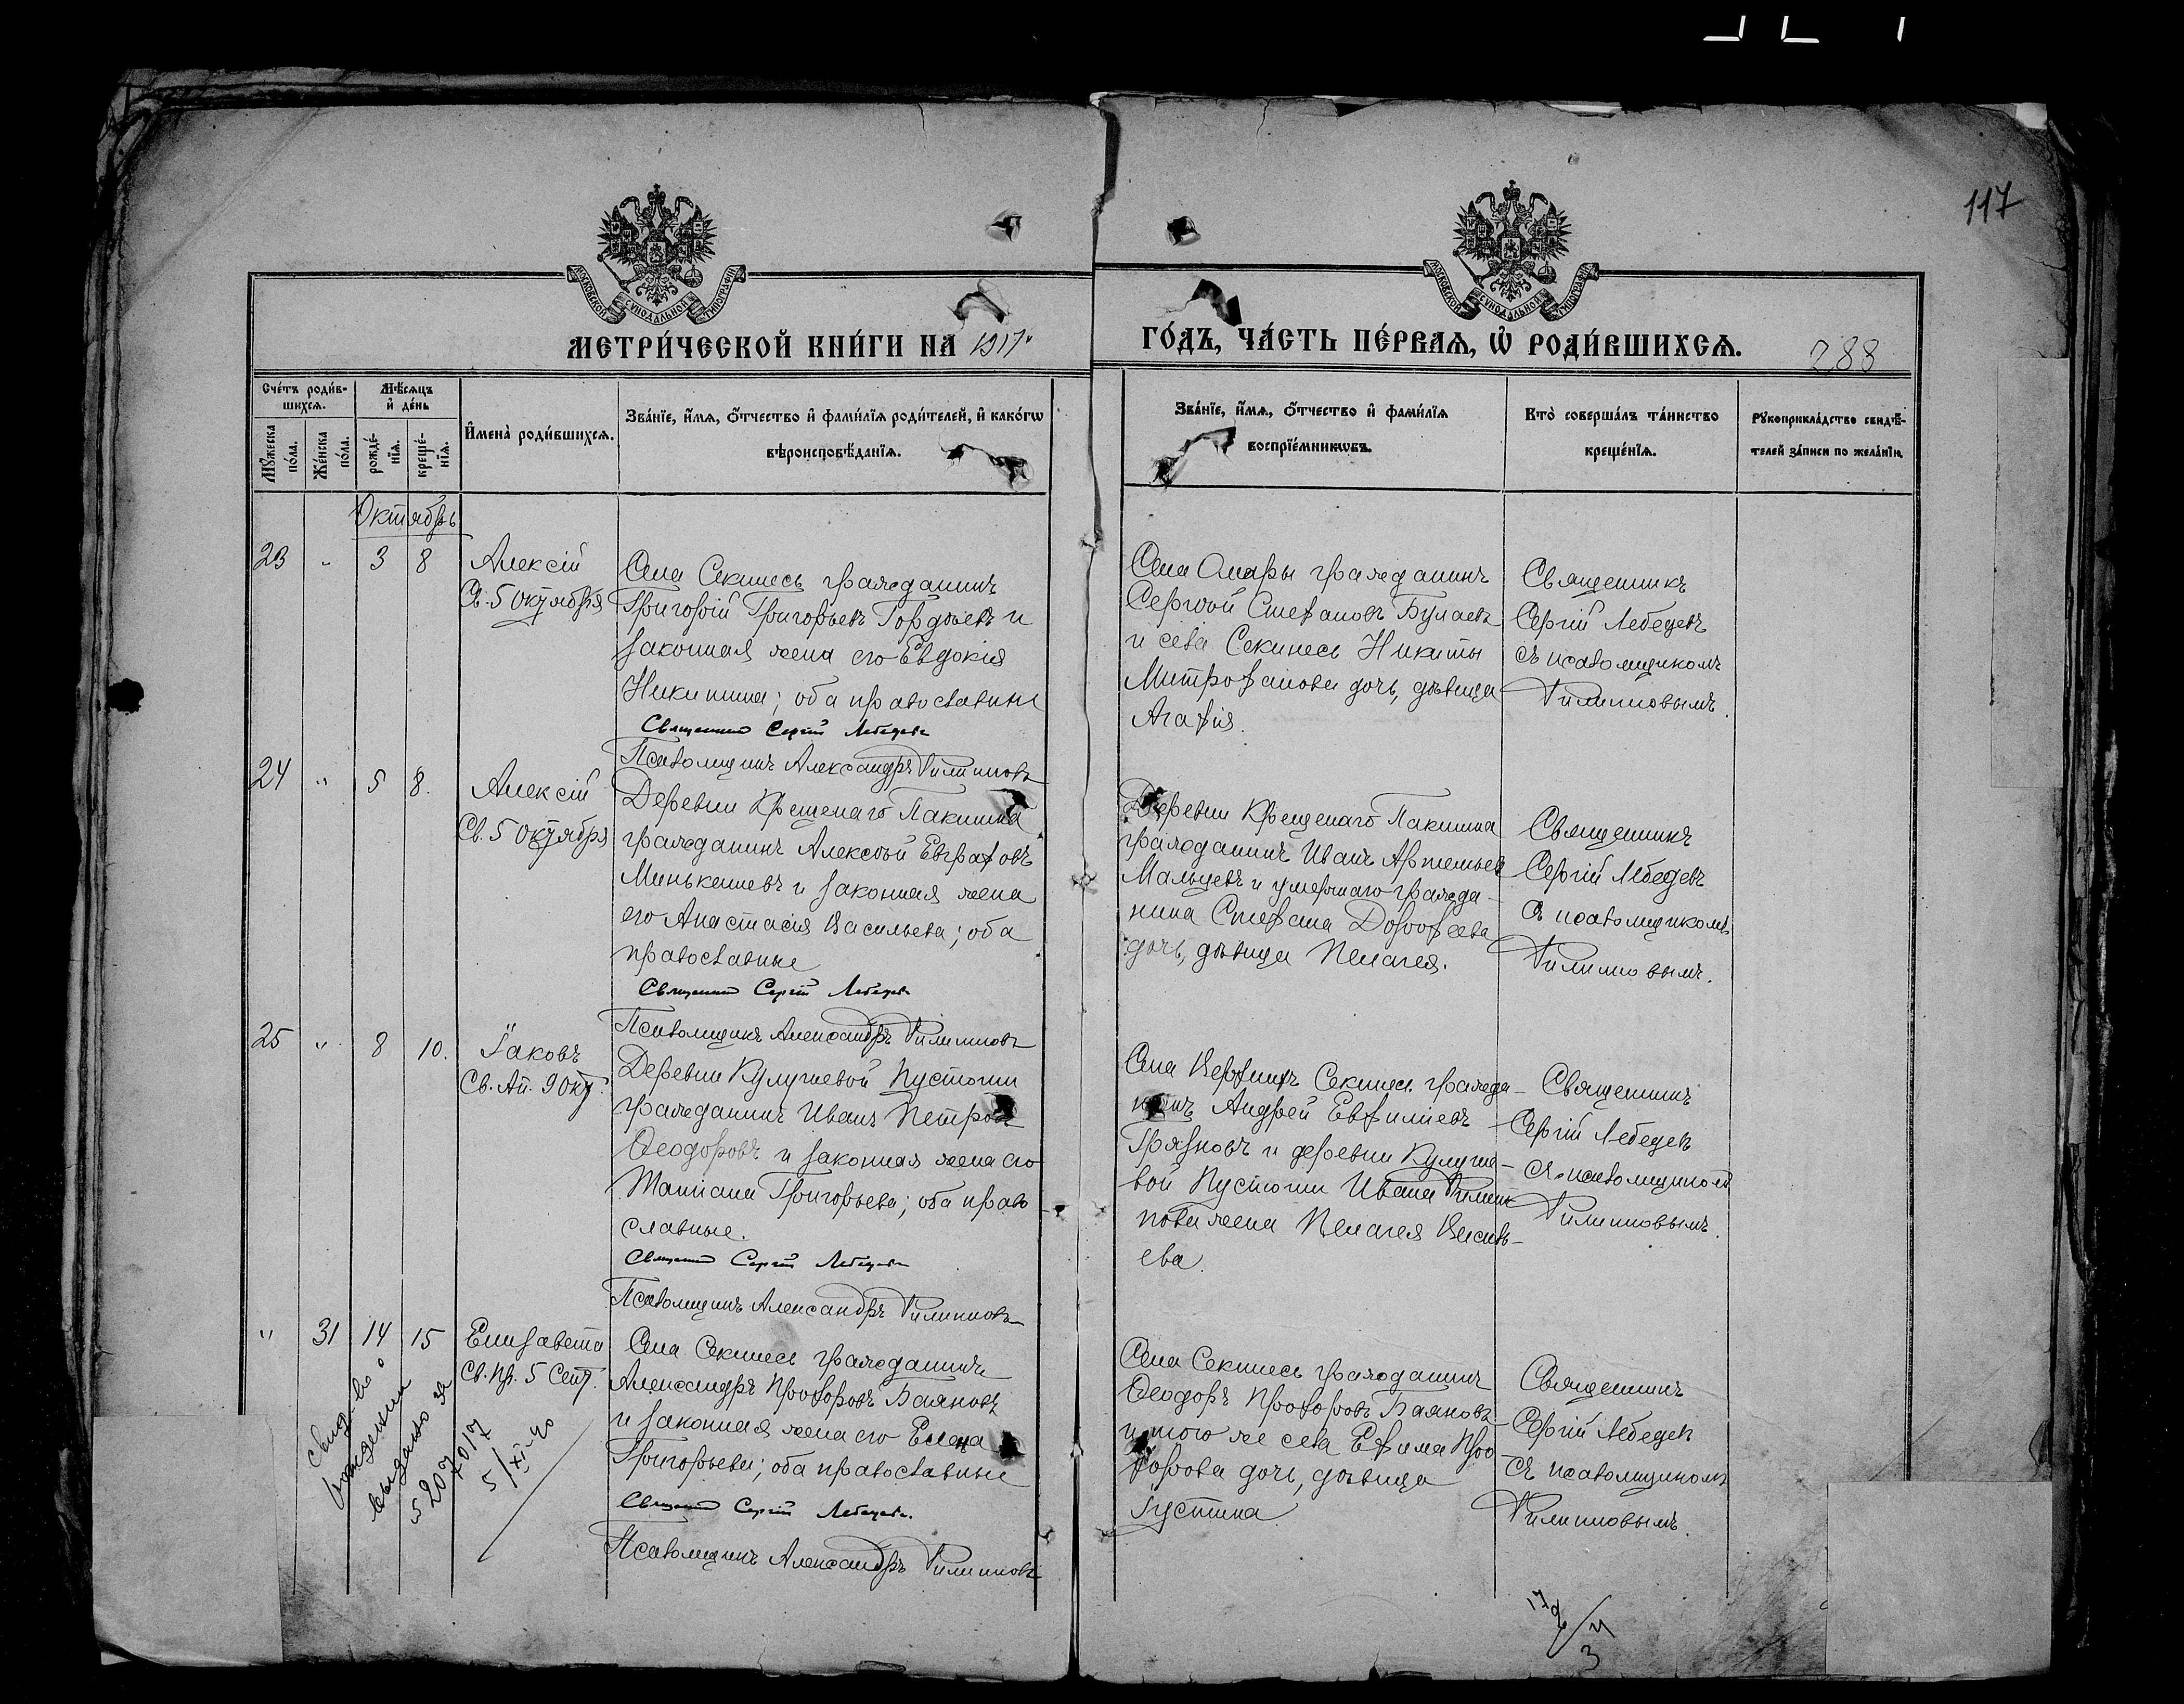 117
МОСКОВСКОЙ СѴНОДАЛЬНОЙ ТИПОГРАФІИ
МОСКОВСКОЙ СѴНОДАЛЬНОЙ ТИПОГРАФІИ
МЕТРИ́ЧЕСКОЙ КНИ́ГИ НА 1917
ГО́ДЪ, ЧА́СТЬ ПЕ́РВАѦ, Ѡ҆ РОДИ́ВШИХСѦ.
288
Сче́тъ роди́в-
шихсѧ.
Мѣ́сѧцъ
и҆ де́нь
Мꙋ́жеска
по́ла.
Же́нска
по́ла.
рожде́-
нїѧ.
креще́-
нїѧ.
И҆мена̀ роди́вшихсѧ.
Зва́нїе, и҆́мѧ, ѻ҆́тчество и҆ фами́лїѧ роди́телей, и҆ како́гѡ
вѣроисповѣ́данїѧ.
Зва́нїе, и҆́мѧ, ѻ҆́тчество и҆ фами́лїѧ
воспрїе́мникѡвъ.
Кто̀ соверша́лъ та́инство
креще́нїѧ.
Рꙋкоприкла́дство свидѣ́-
телей за́писи по жела́нїю.
Октябрь
23 " 3 8
Алексій
Св. 5 октября
Села Секинесь гражданинъ
Григорій Григорьевъ Гордѣевъ и
законная жена его Евдокія
Никитина; оба православные
Священникъ Сергій Лебедевъ
Псаломщикъ Александръ Филипповъ
Села Омары гражданинъ
Сергѣй Стефановъ Булаевъ
и села Секинесь Никиты
Митрофанова дочь, дѣвица
Агафія.
Священникъ
Сергій Лебедевъ
съ псаломщикомъ
Филипповымъ.
24 " 5 8.
Алексій
Св. 5 октября
Деревни Крещенаго Пакшина
гражданинъ Алексѣй Евграфовъ
Минькашевъ и законная жена
его Анастасія Васильева; оба
православные
Священникъ Сергій Лебедевъ
Псаломщикъ Александръ Филипповъ
Деревни Крещенаго Пакшина
гражданинъ Иванъ Артемьевъ
Мальцевъ и умершаго гражда-
нина Стефана Дорофеева
дочь, дѣвица Пелагея.
Священникъ
Сергій Лебедевъ
съ псаломщикомъ
Филипповымъ.
25 " 8 10.
Іаковъ
Св. Ап. 9 окт.
Деревни Кулушевой Пустоши
гражданинъ Иванъ Петровъ
Ѳеодоровъ и законная жена его
Татіана Григорьева; оба право
славные.
Священникъ Сергій Лебедевъ
Псаломщикъ Александръ Филипповъ
Села Верхнихъ Секинесь гражда-
нинъ Андрей Евфиміевъ
Грязновъ и деревни Кулуше-
вой Пустоши Ивана Филип
пова жена Пелагея Василь-
ева.
Священникъ
Сергій Лебедевъ
съ псаломщикомъ
Филипповымъ.
" 31 14 15
Елизавета
Св. пр. 5 Сент.
Села Секинесь гражданинъ
Александръ Прохоровъ Баяновъ
и законная жена его Елена
Григорьева; оба православные
Священникъ Сергій Лебедевъ.
Псаломщикъ Александръ Филипповъ
Села Секинесь гражданинъ
Ѳеодоръ Прохоровъ Баяновъ
и того же села Ефима Про
хорова дочь, дѣвица
Іустина
Священникъ
Сергій Лебедевъ
съ псаломщикомъ
Филипповымъ.
свид-во о
рождении
выдано за
5/XI-40